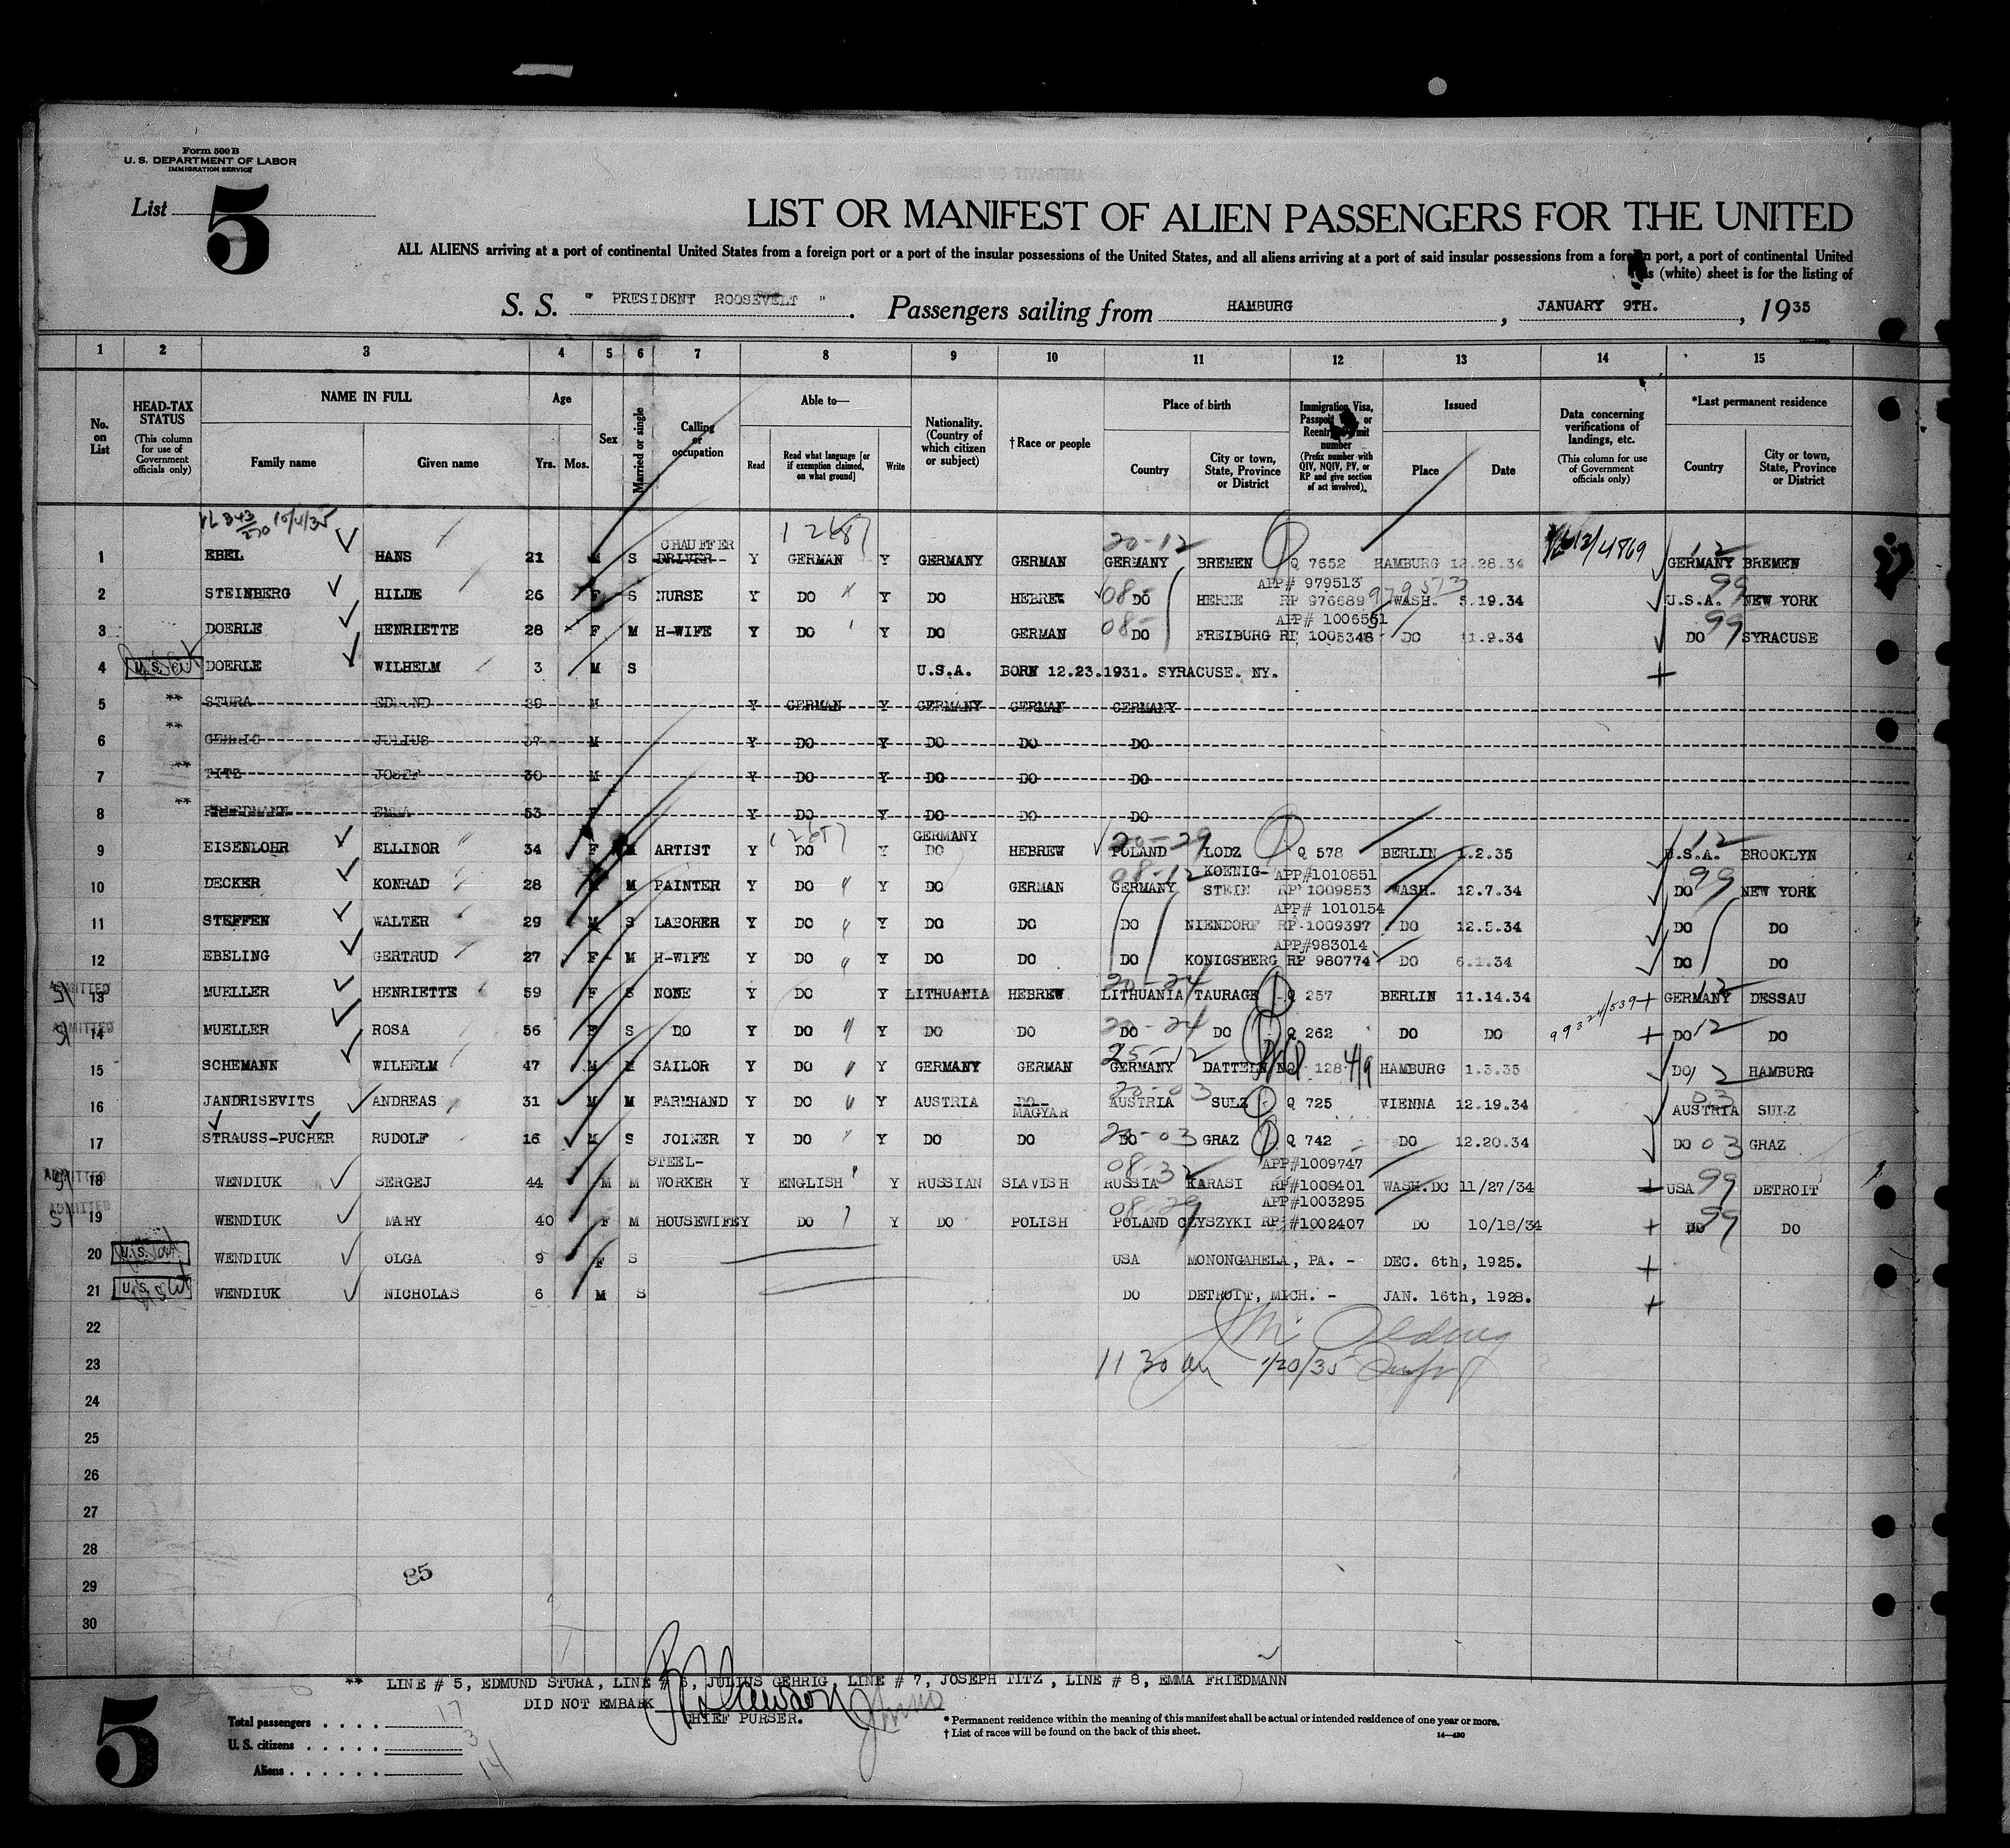 Form 500 B
U. S. DEPARTMENT OF LABOR
IMMIGRATION SERVICE
List 5
LIST OR MANIFEST OF ALIEN PASSENGERS FOR THE UNITED
ALL ALIENS arriving at a port of continental United States from a foreign port or a port of the insular possessions of the United States, and all aliens arriving at a port of said insular possessions from a foreign port, a port of continental United
(white) sheet is for the listing of
S. S. " PRESIDENT ROOSEVELT ". Passengers sailing from HAMBURG, JANUARY 9TH., 1935
1 2 3 4 5 6 7 8 9 10 11 12 13 14 15
No. on List
HEAD-TAX STATUS (This column for use of Government officials only)
NAME IN FULL
Family name Given name
Age
Yrs. Mos.
Sex
Married or single
Calling or occupation
Able to—
Read
Read what language [or if exemption claimed, on what ground]
Write
Nationality. (Country of which citizen or subject)
† Race or people
Place of birth
Country
City or town, State, Province or District
Immigration Visa, Passport or Reentry Permit number (Prefix number with QIV, NQIV, PV, or RP and give section of act involved).
Issued
Place Date
Data concerning verifications of landings, etc. (This column for use of Government officials only)
*Last permanent residence
Country
City or town, State, Province or District
10/4/35
CHAUFFER 20-12
1 EBEL HANS 21 M S DRIVER-- Y GERMAN Y GERMANY GERMAN GERMANY BREMEN Q 7652 HAMBURG 12.28.34 GERMANY 12 BREMEN
APP# 979513 979573
2 STEINBERG HILDE 26 F S NURSE Y DO Y DO HEBREW 08- DO HERNE RP 976689 WASH. 5.19.34 U.S.A. 99 NEW YORK
APP# 1006551
3 DOERLE HENRIETTE 28 F M H-WIFE Y DO Y DO GERMAN 08- DO FREIBURG RP 1005348 DO 11.9.34 DO 99 SYRACUSE
4 U.S. DOERLE WILHELM 3 M S U.S.A. BORN 12.23.1931. SYRACUSE. NY.
5 ** STURA EDMUND M Y GERMAN Y GERMANY GERMAN GERMANY
6 ** GEHRIG JULIUS 37 M Y DO Y DO DO DO
7 ** TITZ JOSEF 30 M Y DO Y DO DO DO
8 ** FRIEDMANN EMMA 53 F Y DO Y DO DO DO
GERMANY 20-29
9 EISENLOHR ELLINOR 34 F M ARTIST Y DO Y DO HEBREW POLAND LODZ Q 578 BERLIN 1.2.35 U.S.A. 12 BROOKLYN
08-12 KOENIG- APP#1010851
10 DECKER KONRAD 28 M M PAINTER Y DO Y DO GERMAN GERMANY STEIN RP 1009853 WASH. 12.7.34 DO 99 NEW YORK
APP# 1010154
11 STEFFEN WALTER 29 M S LABORER Y DO Y DO DO DO NIENDORF RP 1009397 DO 12.5.34 DO DO
APP#983014
12 EBELING GERTRUD 27 F M H-WIFE Y DO Y DO DO DO KONIGSBERG RP 980774 DO 6.1.34 DO DO
20-24
ADMITTED SI 13 MUELLER HENRIETTE 59 F S NONE Y DO Y LITHUANIA HEBREW LITHUANIA TAURAGE Q 257 BERLIN 11.14.34 GERMANY 12 DESSAU
ADMITTED SI 14 MUELLER ROSA 56 F S DO Y DO Y DO DO DO 20-24 DO Q 262 DO DO DO 12 DO
25-12
15 SCHEMANN WILHELM 47 M M SAILOR Y DO Y GERMANY GERMAN GERMANY DATTELN NQ 128 4/9 HAMBURG 1.3.35 DO 12 HAMBURG
20-03
16 JANDRISEVITS ANDREAS 31 M M FARMHAND Y DO Y AUSTRIA DO-- MAGYAR AUSTRIA SULZ Q 725 VIENNA 12.19.34 AUSTRIA 03 SULZ
17 STRAUSS-PUCHER RUDOLF 16 M S JOINER Y DO Y DO DO DO 20-03 GRAZ Q 742 DO 12.20.34 DO 03 GRAZ
STEEL- 08-32 APP#1009747
ADMITTED SI 18 WENDIUK SERGEJ 44 M M WORKER Y ENGLISH Y RUSSIAN SLAVISH RUSSIA KARASI RP#1008401 WASH.DC 11/27/34 USA 99 DETROIT
08-29 APP#1003295
ADMITTED SI 19 WENDIUK MARY 40 F M HOUSEWIFE Y DO Y DO POLISH POLAND CZYSZYKI RP #1002407 DO 10/18/34 DO 99 DO
20 U.S. WENDIUK OLGA 9 F S USA MONONGAHELA, PA. - DEC. 6th, 1925.
21 U.S. WENDIUK NICHOLAS 6 M S DO DETROIT, MICH. - JAN. 16th, 1928.
22
23 11 30 am 1/20/35
24
25
26
27
28
29
30
85
** LINE # 5, EDMUND STURA, LINE # 6, JULIUS GEHRIG, LINE # 7, JOSEPH TITZ , LINE # 8, EMMA FRIEDMANN
DID NOT EMBARK
CHIEF PURSER.
5
Total passengers . . . . 17
U. S. citizens . . . . . 3
Aliens . . . . . . 14
* Permanent residence within the meaning of this manifest shall be actual or intended residence of one year or more.
† List of races will be found on the back of this sheet.
14—430